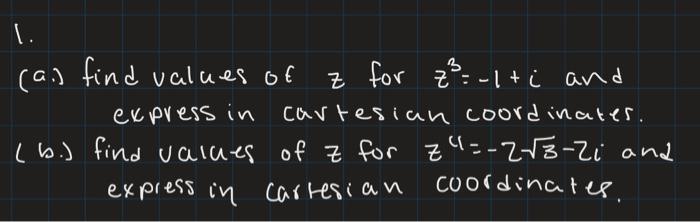 1.
(a.) find values of z for z³=-1+i and
express in cartesian coordinates.
(b.) find values of z for z⁴=-2√3-2i and
express in cartesian coordinates.